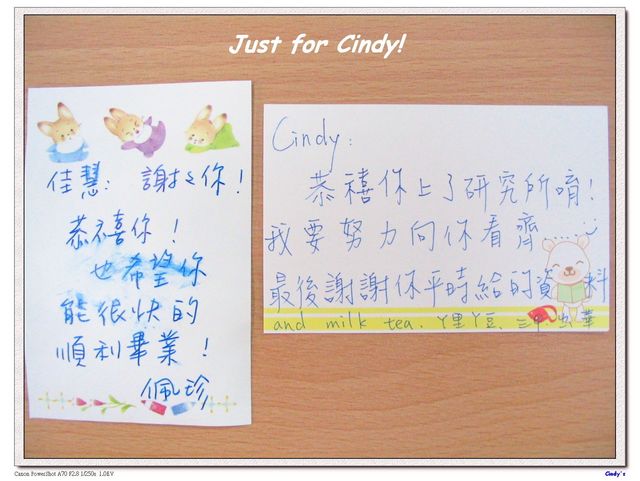 Just for Cindy!
佳慧: 謝々你!
恭禧你!
也希望你
能很快的
順利畢業!
佩珍
Cindy:
恭禧你上了研究所唷!
我要努力向你看齊......
最後謝謝你平時給的資料
and milk tea. ㄚ里ㄚ豆.
Canon PowerShot A70 F2.8 1/250s 1.0EV
Cindy's